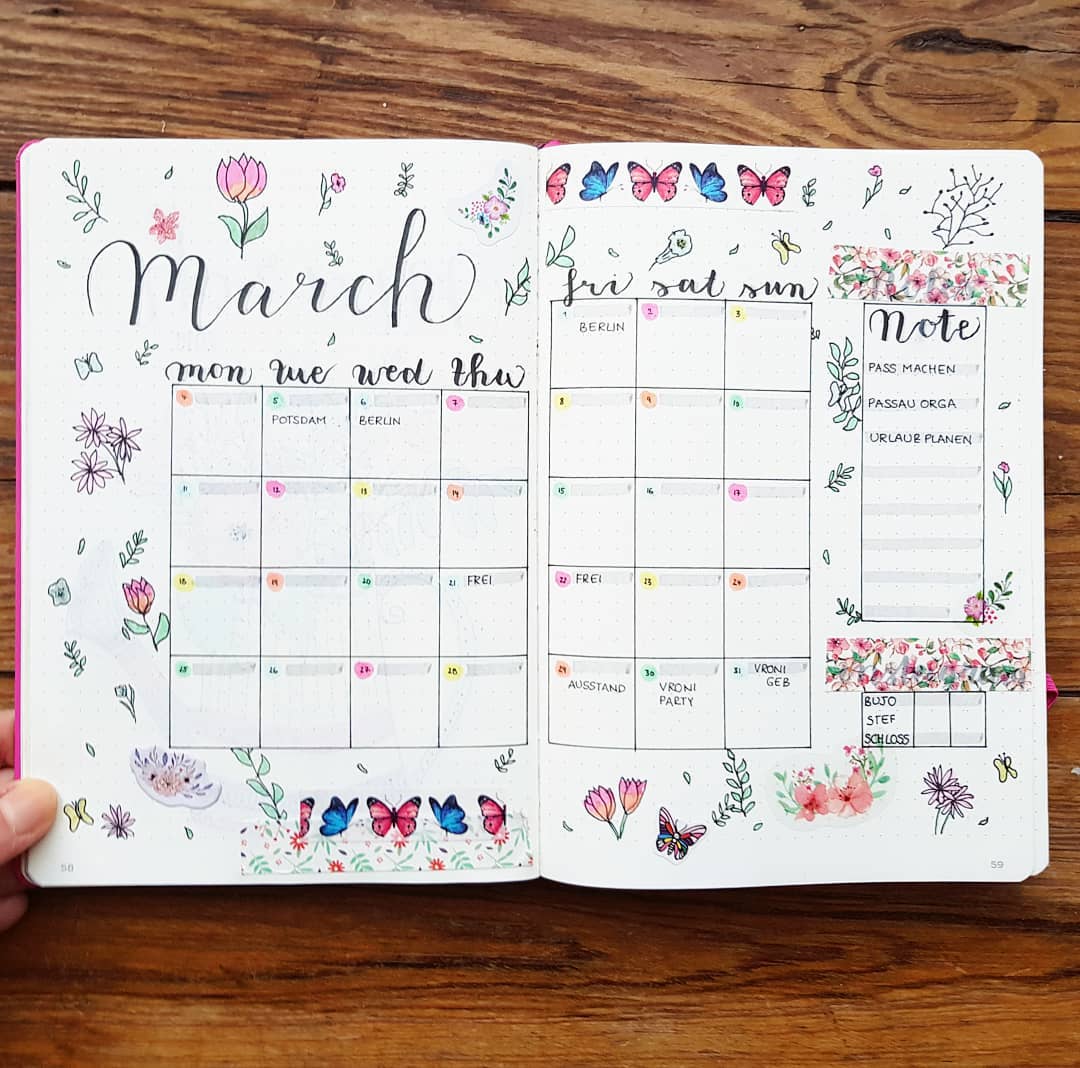 March
mon tue wed thu
fri sat sun
1 2 3
BERLIN
4 5 6 7
POTSDAM BERLIN
8 9 10
11 12 13 14
15 16 17
18 19 20 21 FREI
22 FREI 23 24
25 26 27 28
29 30 31 VRONI
AUSSTAND VRONI GEB
PARTY
Note
PASS MACHEN
PASSAU ORGA
URLAUB PLANEN
BUJO
STEF
SCHLOSS
58
59